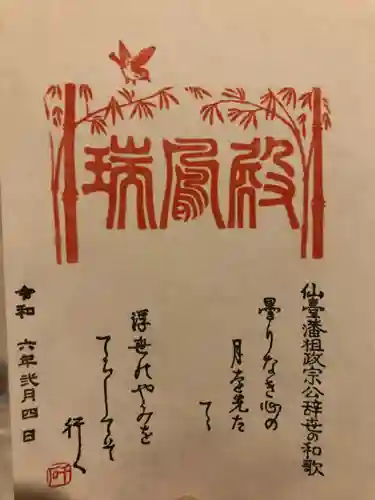 瑞鳳殿
仙臺藩祖政宗公辞世の和歌
曇りなき心の
月を先だ
て
浮世のやみを
てらしてぞ
行く
令和六年弐月四日